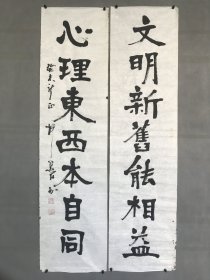 文明新舊能相益
心理東西本自同